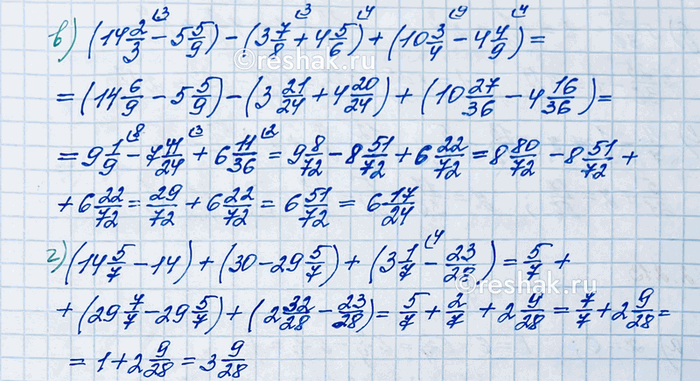 в) (14 2/3 - 5 5/9) - (3 7/8 + 4 5/6) + (10 3/4 - 4 4/9) =
= (14 6/9 - 5 5/9) - (3 21/24 + 4 20/24) + (10 27/36 - 4 16/36) =
= 9 1/9 - 7 41/24 + 6 11/36 = 9 8/72 - 8 51/72 + 6 22/72 = 8 80/72 - 8 51/72 +
+ 6 22/72 = 29/72 + 6 22/72 = 6 51/72 = 6 17/24
г) (14 5/7 - 14) + (30 - 29 5/7) + (3 1/7 - 23/28) = 5/7 +
+ (29 7/7 - 29 5/7) + (2 32/28 - 23/28) = 5/7 + 2/7 + 2 9/28 = 7/7 + 2 9/28 =
= 1 + 2 9/28 = 3 9/28
reshak.ru